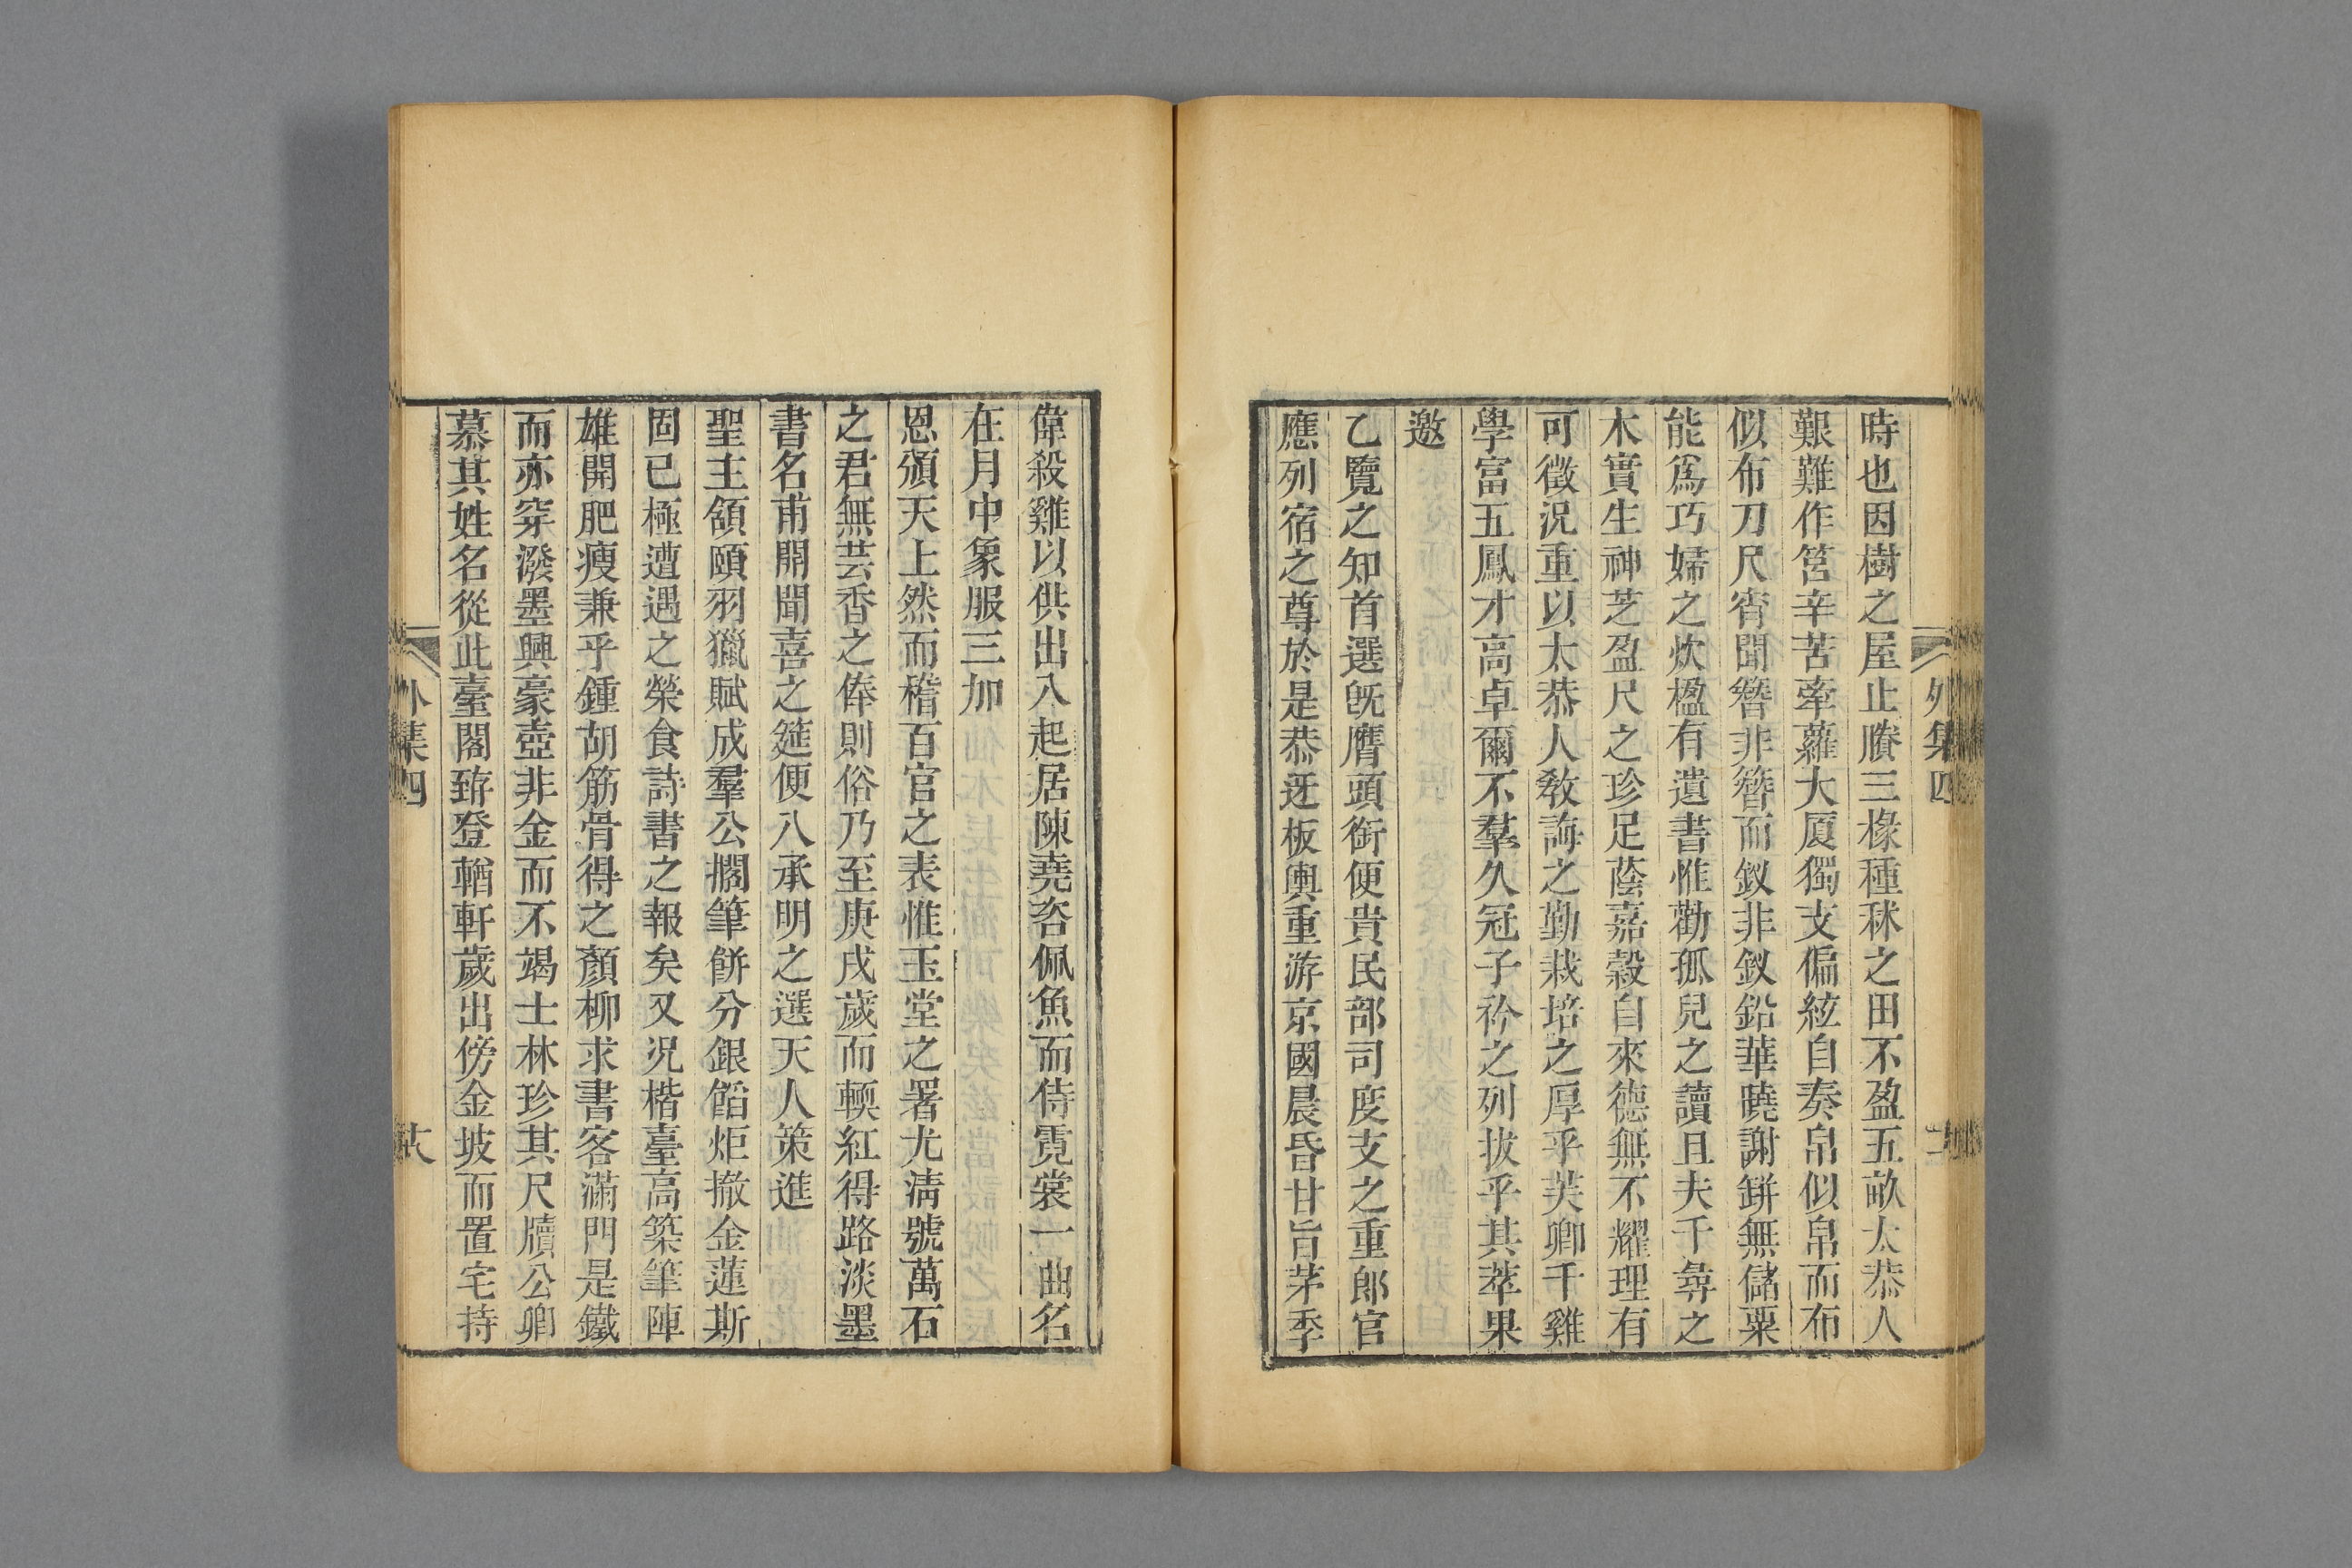 外集四
時也因樹之屋止賸三椽種秫之田不盈五畝太恭人
艱難作筥辛苦牽蘿大厦獨支偏絃自奏帛似帛而布
似布刀尺宵聞簪非簪而釵非釵鉛華曉謝缾無儲粟
能爲巧婦之炊楹有遺書惟勸孤兒之讀且夫千尋之
木實生神芝盈尺之珍足蔭嘉穀自來德無不耀理有
可徵況重以太恭人敎誨之勤栽培之厚乎芙卿千雞
學富五鳳才高卓爾不羣久冠子衿之列拔乎其萃果
邀
乙覽之知首選旣膺頭銜便貴民部司度支之重郎官
應列宿之尊於是恭迓板輿重游京國晨昏甘旨茅季
偉殺雞以供出入起居陳堯咨佩魚而侍霓裳一曲名
在月中象服三加
恩頒天上然而稽百官之表惟玉堂之署尤淸號萬石
之君無芸香之俸則俗乃至庚戌歲而輭紅得路淡墨
書名甫開聞喜之筵便入承明之選天人策進
聖主頷頤羽獵賦成羣公擱筆餅分銀餡炬撤金蓮斯
固已極遭遇之榮食詩書之報矣又況楷臺高築筆陣
雄開肥瘦兼乎鍾胡筋骨得之顏柳求書客滿門是鐵
而亦穿潑墨興豪壺非金而不竭士林珍其尺牘公卿
慕其姓名從此臺閣臻登輶軒歲出傍金坡而置宅持
外集四